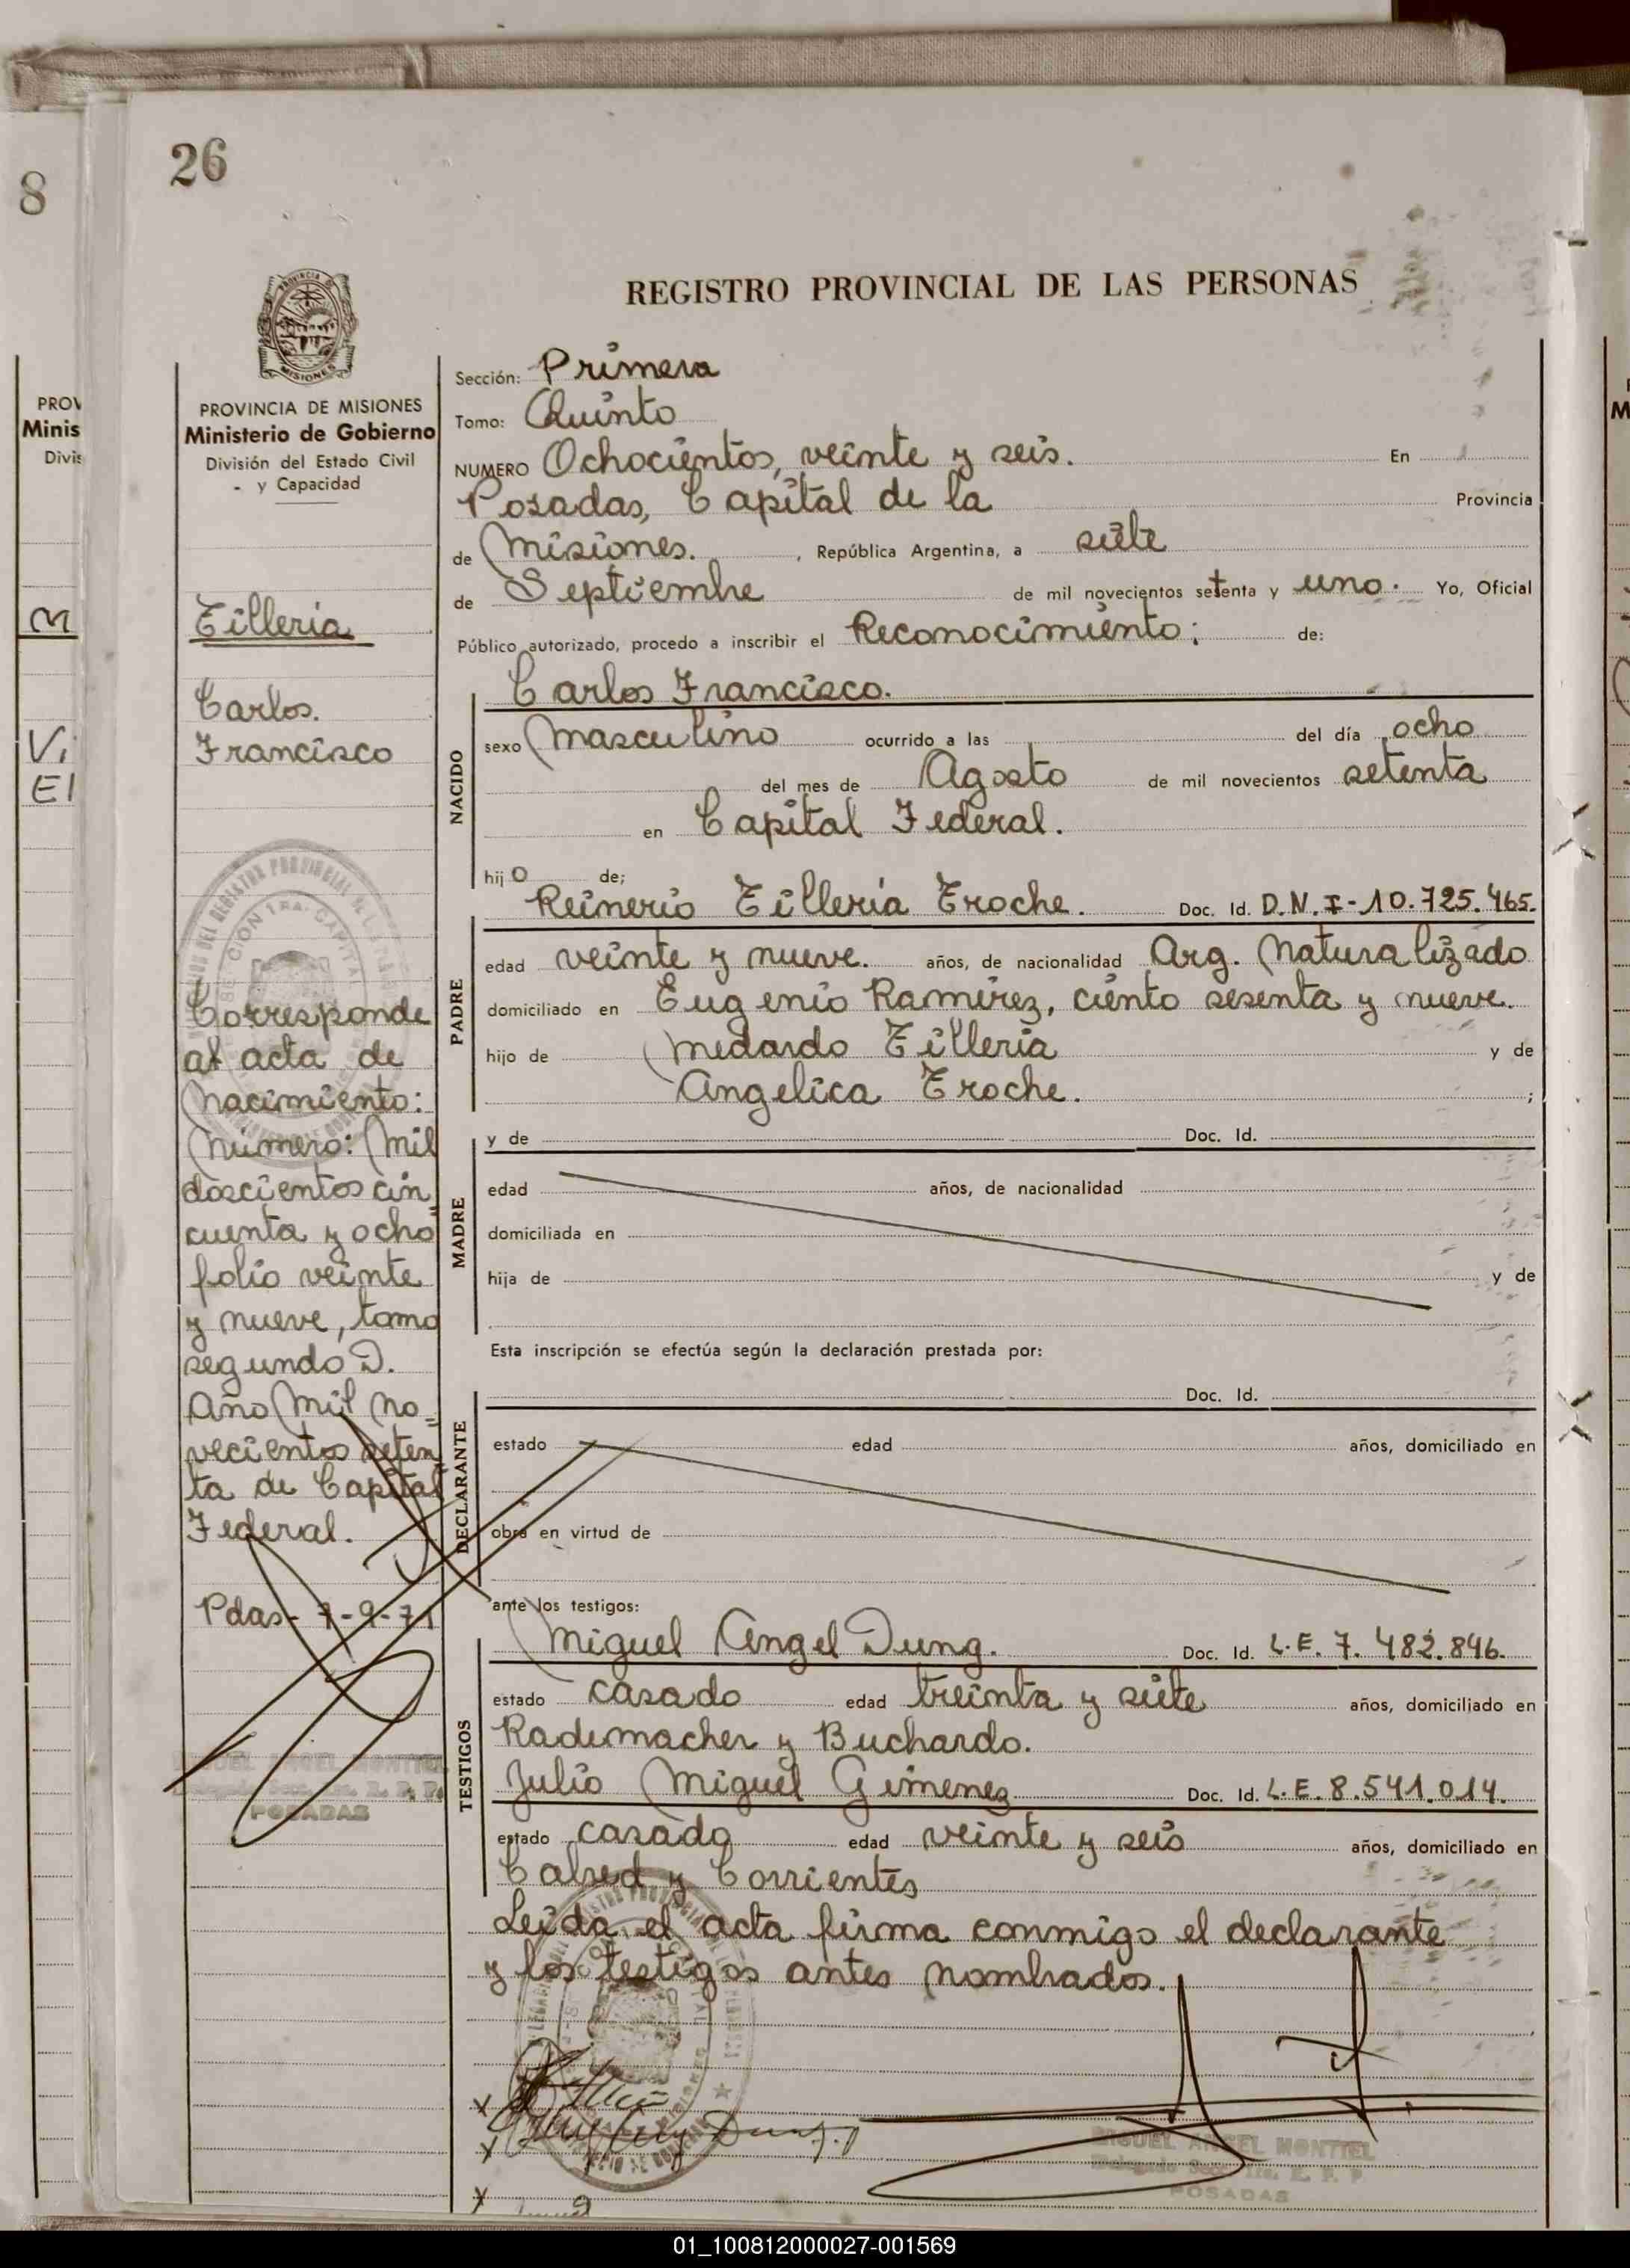 8
26
PROVINCIA
MISIONES
REGISTRO PROVINCIAL DE LAS PERSONAS
PROVINCIA DE MISIONES
Ministerio de Gobierno
División del Estado Civil
- y Capacidad
Tilleria
Carlos.
Francisco
Corresponde
al acta de
Nacimiento:
Número: Mil
doscientos cin
cuenta y ocho
folio veinte
y nueve, tomo
segundo D.
Año Mil No=
vecientos seten
ta de Capital
Federal.
Pdas- 7-9-71
MIGUEL ANGEL MONTIEL
POSADAS
Sección: Primera
Tomo: Quinto
NUMERO Ochocientos, veinte y seis. En
Posadas, Capital de la Provincia
de Misiones. , República Argentina, a siete
de Septiembre de mil novecientos setenta y uno. Yo, Oficial
Público autorizado, procedo a inscribir el Reconocimiento; de:
Carlos Francisco.
NACIDO
sexo Masculino ocurrido a las del día ocho
del mes de Agosto de mil novecientos setenta
en Capital Federal.
hijo de;
Reinerio Tilleria Troche. Doc. Id. D.N.I-10.725.465.
PADRE
edad veinte y nueve. años, de nacionalidad Arg. Naturalizado
domiciliado en Eugenio Ramirez, ciento sesenta y nueve.
hijo de Medardo Tilleria y de
Angelica Troche. ;
y de Doc. Id.
MADRE
edad años, de nacionalidad
domiciliada en
hija de y de
Esta inscripción se efectúa según la declaración prestada por:
Doc. Id.
DECLARANTE
estado edad años, domiciliado en
obra en virtud de
ante los testigos:
Miguel Angel Dung. Doc. Id. L.E. 7.482.896.
TESTIGOS
estado casado edad treinta y siete años, domiciliado en
Rademacher y Buchardo.
Julio Miguel Gimenez Doc. Id. L.E. 8.541.014.
estado casado edad veinte y seis años, domiciliado en
Cabred y Corrientes
Leida el acta firma conmigo el declarante
y los testigos antes nombrados.
MIGUEL ANGEL MONTIEL
POSADAS
01_100812000027-001569